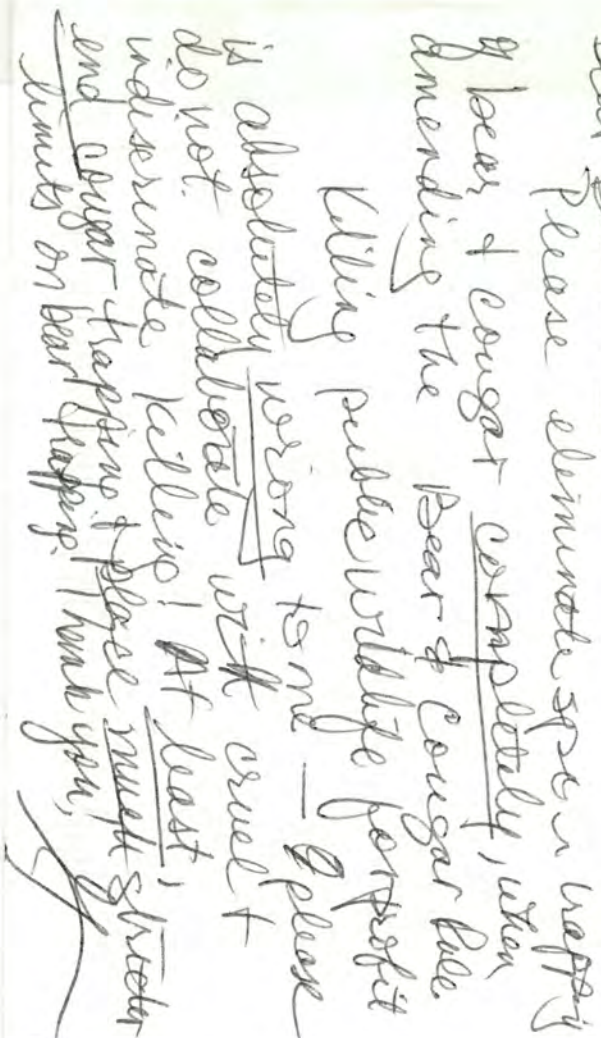 Please eliminate trapping
of bear & cougar completely, when
amending the Bear & Cougar Rule.
Killing public wildlife for profit
is absolutely wrong to me — please
do not collaborate with cruel +
indiscrimate killing! At least,
end cougar trapping + place much stricter
limits on bear trapping. Thank you,